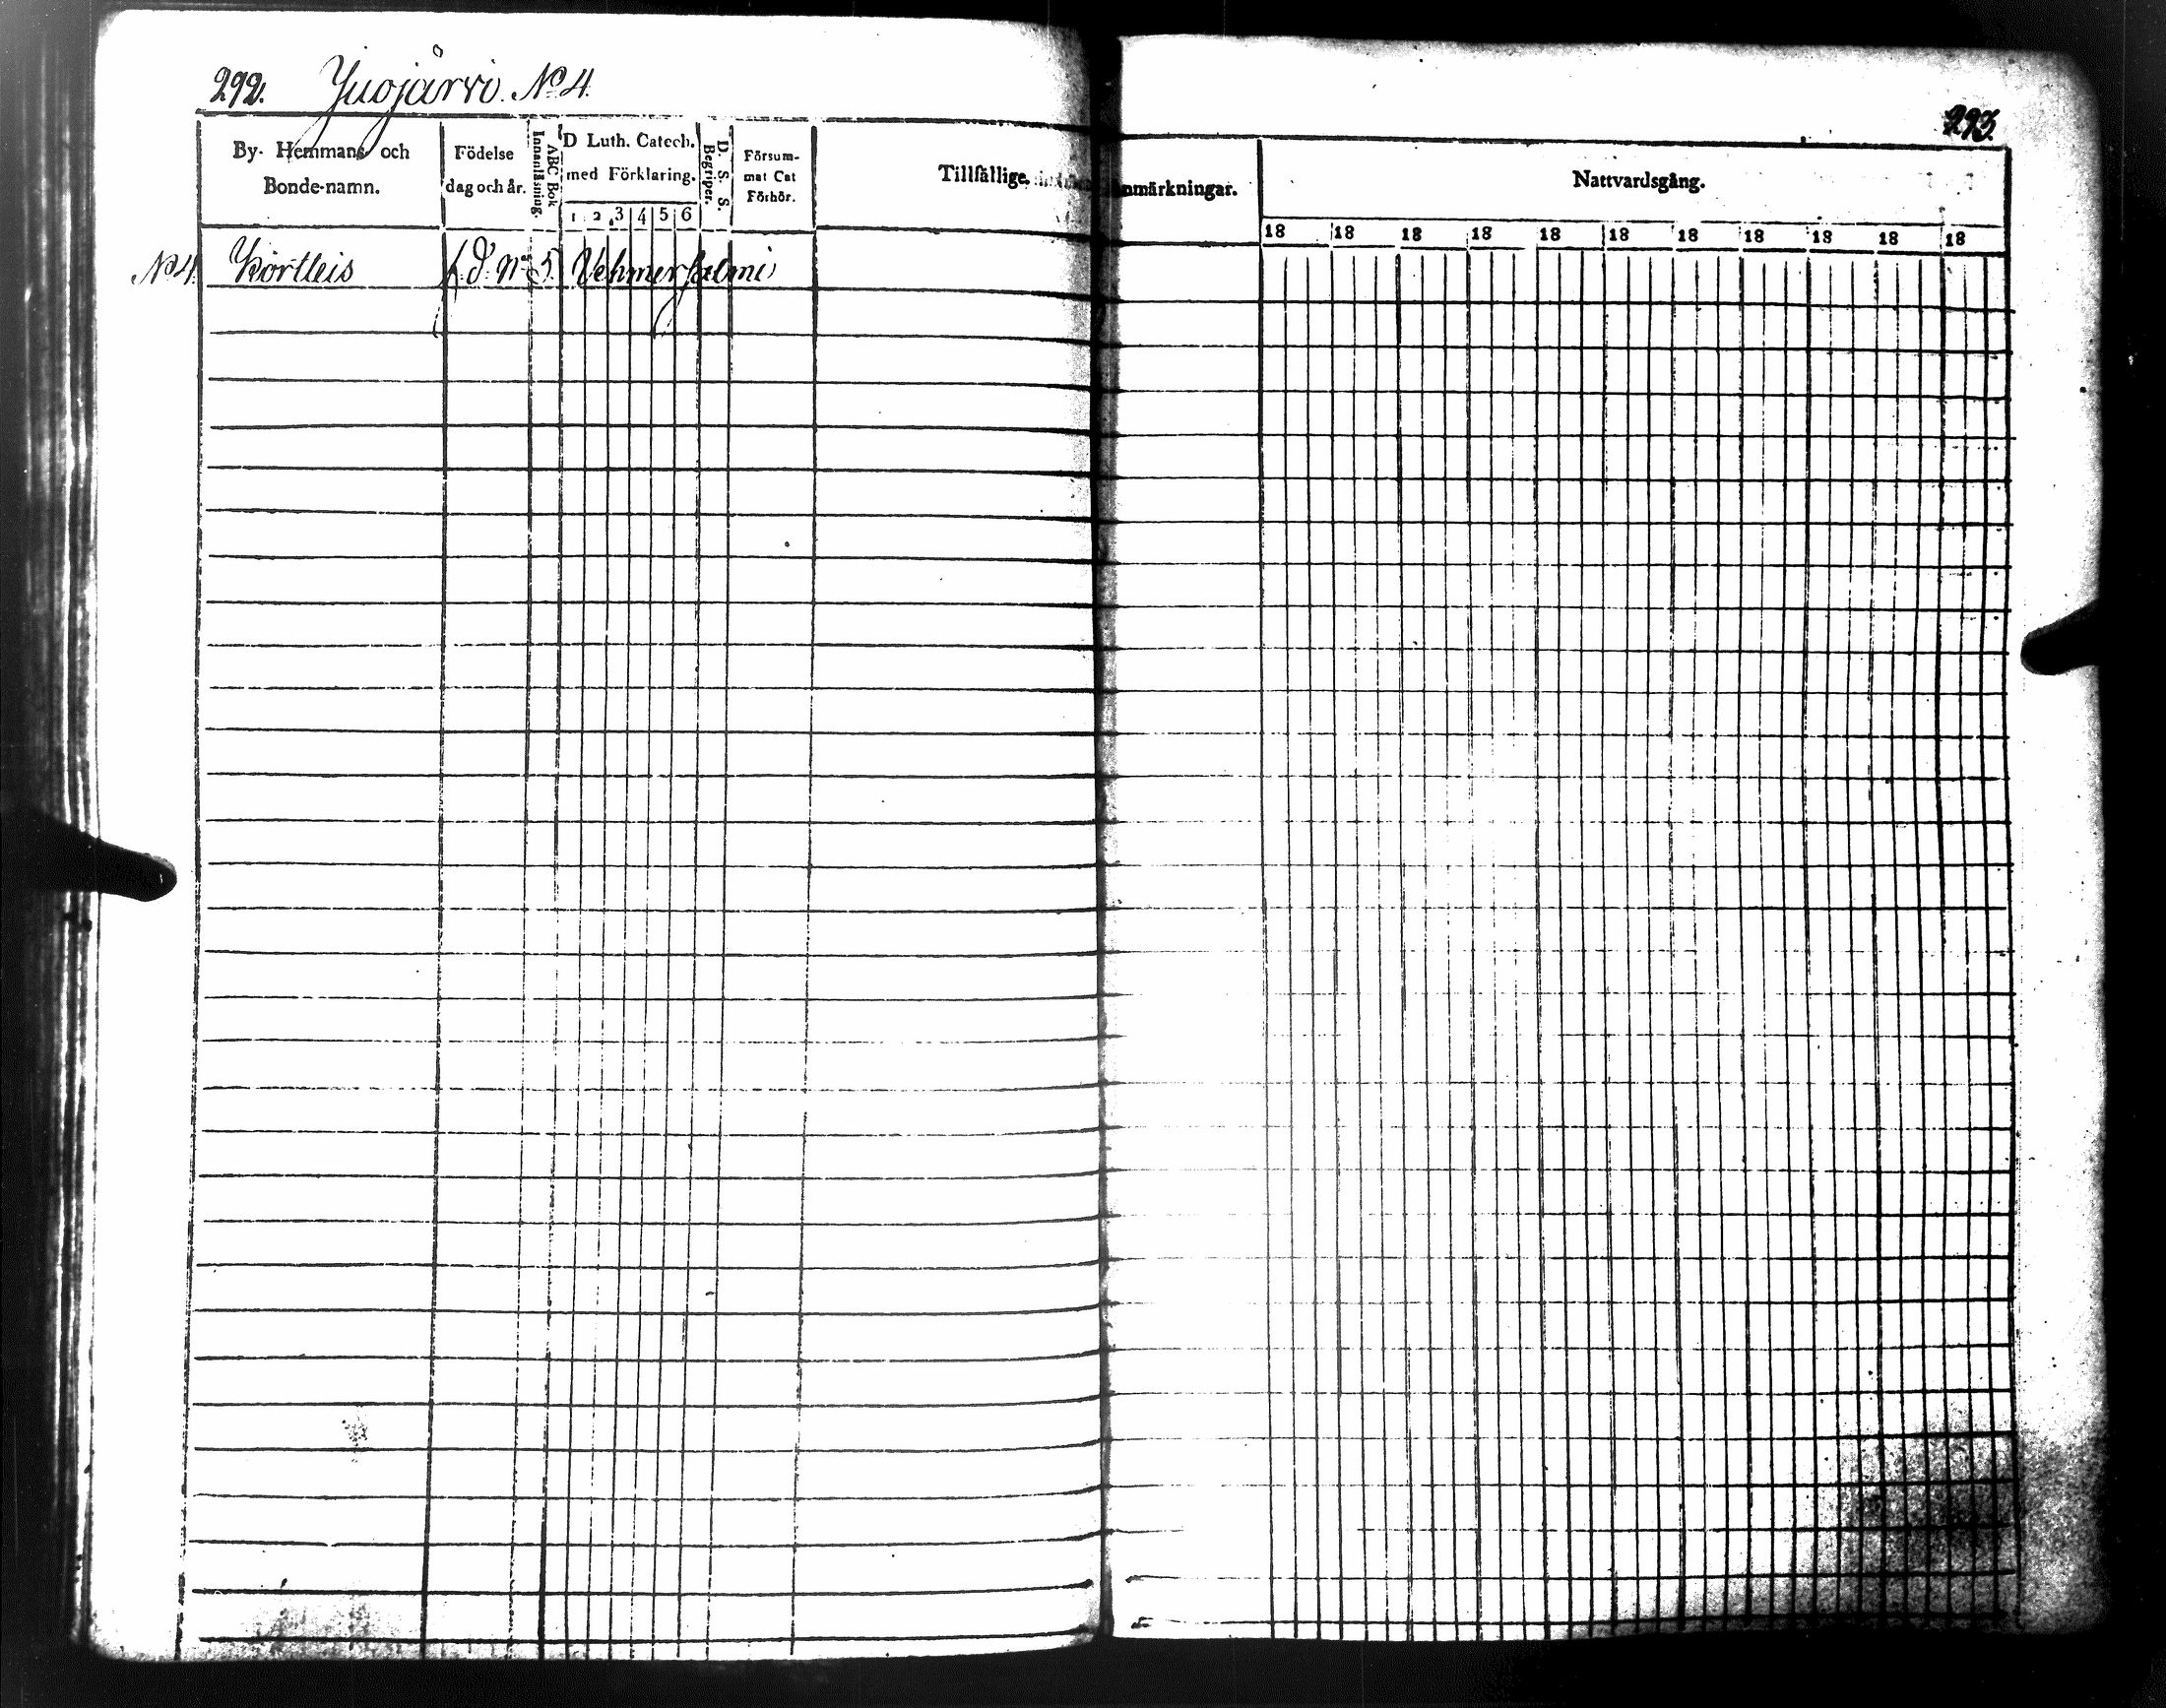 292. Juojärvi. No 4.
293
By- Hemmans och Bonde-namn.
Födelse dag och år.
Innanläsning.
ABC Bok
D Luth. Catech. med Förklaring.
1 2 3 4 5 6
D. S. S. Begriper.
Försum- mat Cat Förhör.
Tillfällige Anmärkningar.
Nattvardsgång.
18 18 18 18 18 18 18 18 18 18 18
No 4. Kortteis f. d. No 5. Vehmersalmi